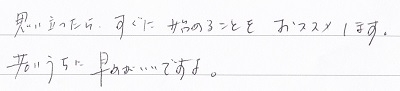 思い立ったら、すぐに始めることをおススメします。
若いうちに早めがいいですよ。